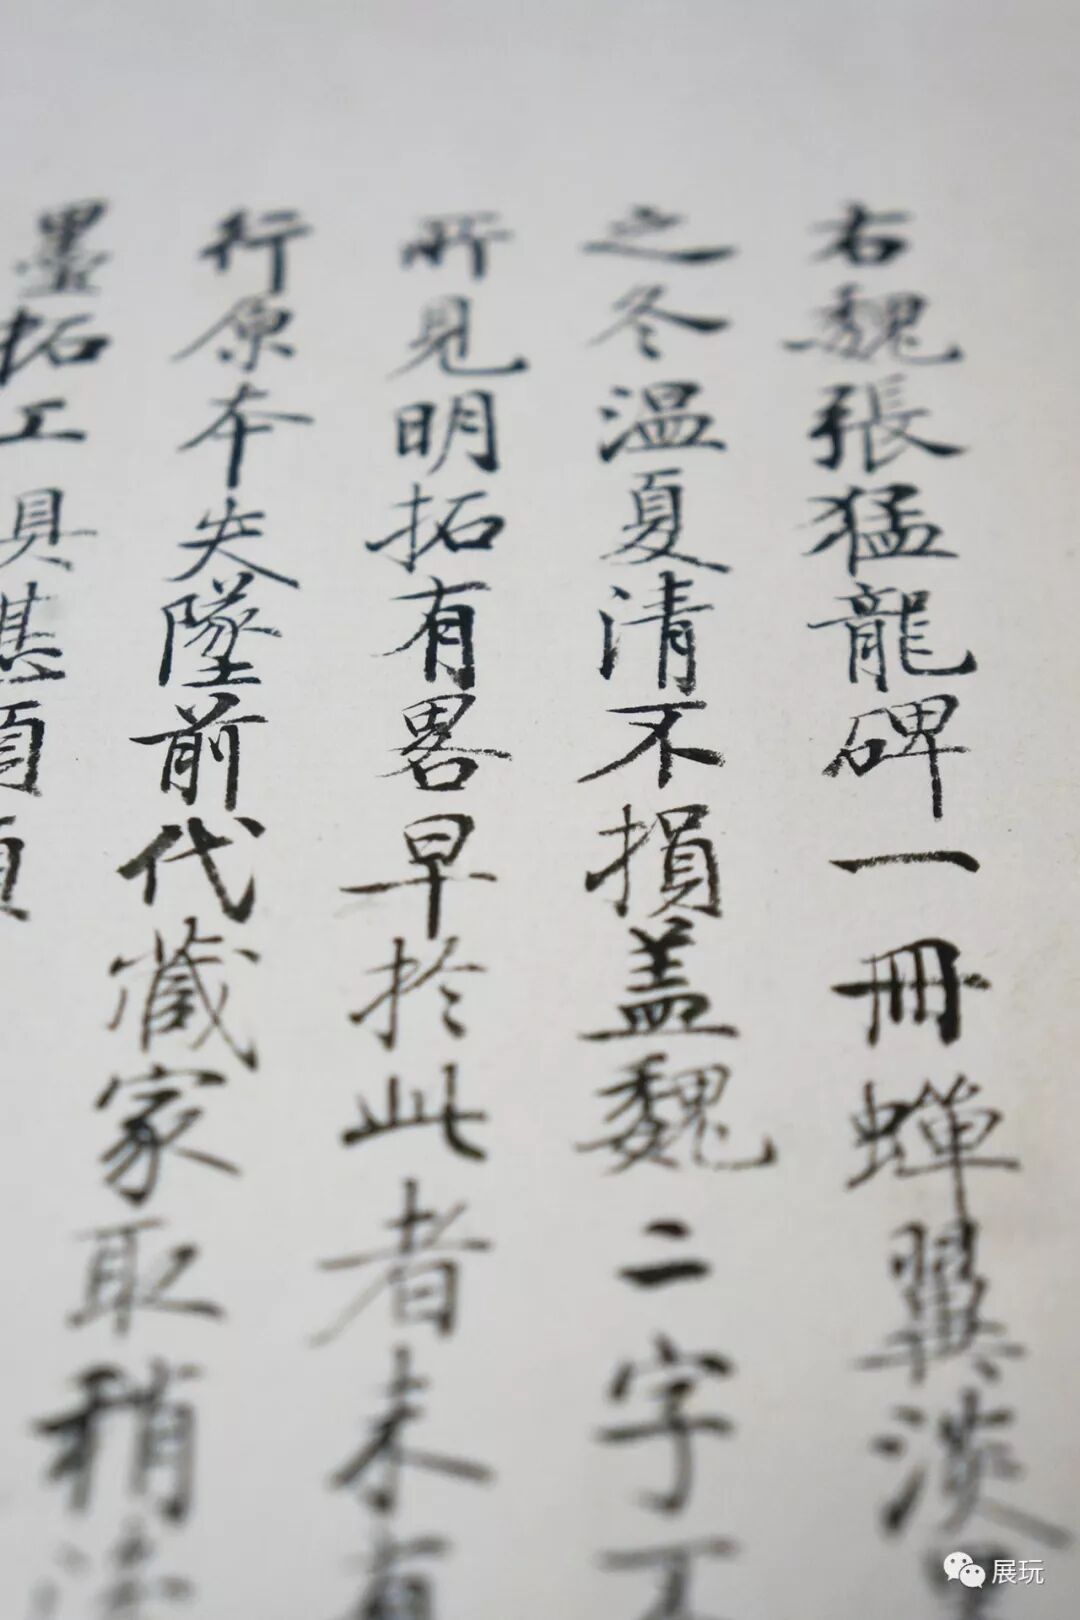 右魏張猛龍碑一冊蟬翼淡墨
之冬温夏清不損盖魏二字
所見明拓有畧早於此者未有
行原本失墜前代藏家取稍
墨拓工具甚
展玩